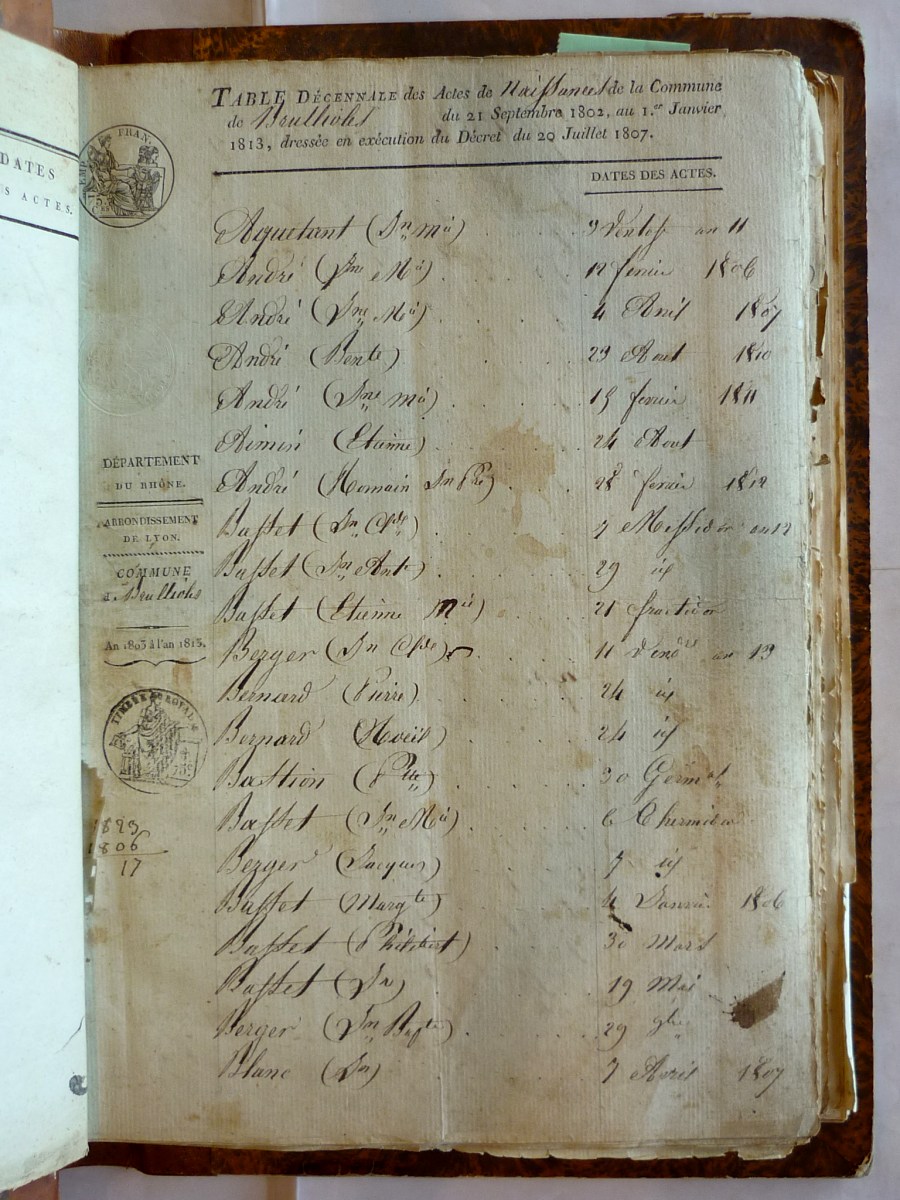 DATES
S ACTES.
TABLE DÉCENNALE des Actes de Naissances de la Commune
de Brullioles du 21 Septembre 1802, au 1.er Janvier
1813, dressée en exécution du Décret du 20 Juillet 1807.
DATES DES ACTES.
Aquetant (Jn mie) 9 Ventose an 11
André (Jne Mie) 12 fevrier 1806
André (Jne Mie) 4 Avril 1807
André (Bente) 23 Aout 1810
André (Jne mie) 15 fevrier 1811
Etienne) 24 Aout
André (Romain Jn Pre) 28 fevrier 1812
Basset (Jn Clde) 7 Messidor an 12
Basset (Jn Ante) 29 id
Basset (Etienne Mie) 21 fructidor
Berger (Jn Clde) 11 Vendre an 13
Bernard (Pierre) 24 id
Bernard 24 id
Bastion (Ptte) 30 Germal
Basset (Jn Mie) 6 Thermidor
Berger (Jacques) 7 id
Basset (Margte) 4 Janvier 1806
Basset (Philibert) 30 Mars
Basset (Jn) 19 Mai
Berger (Jn Bapte) 29 9bre
Blanc (Jn) 7 Avril 1807
DÉPARTEMENT
DU RHÔNE.
ARRONDISSEMENT
DE LYON.
COMMUNE
d. Brullioles
An 1803 à l'an 1813.
TIMBRE ROYAL
1823
1806
17